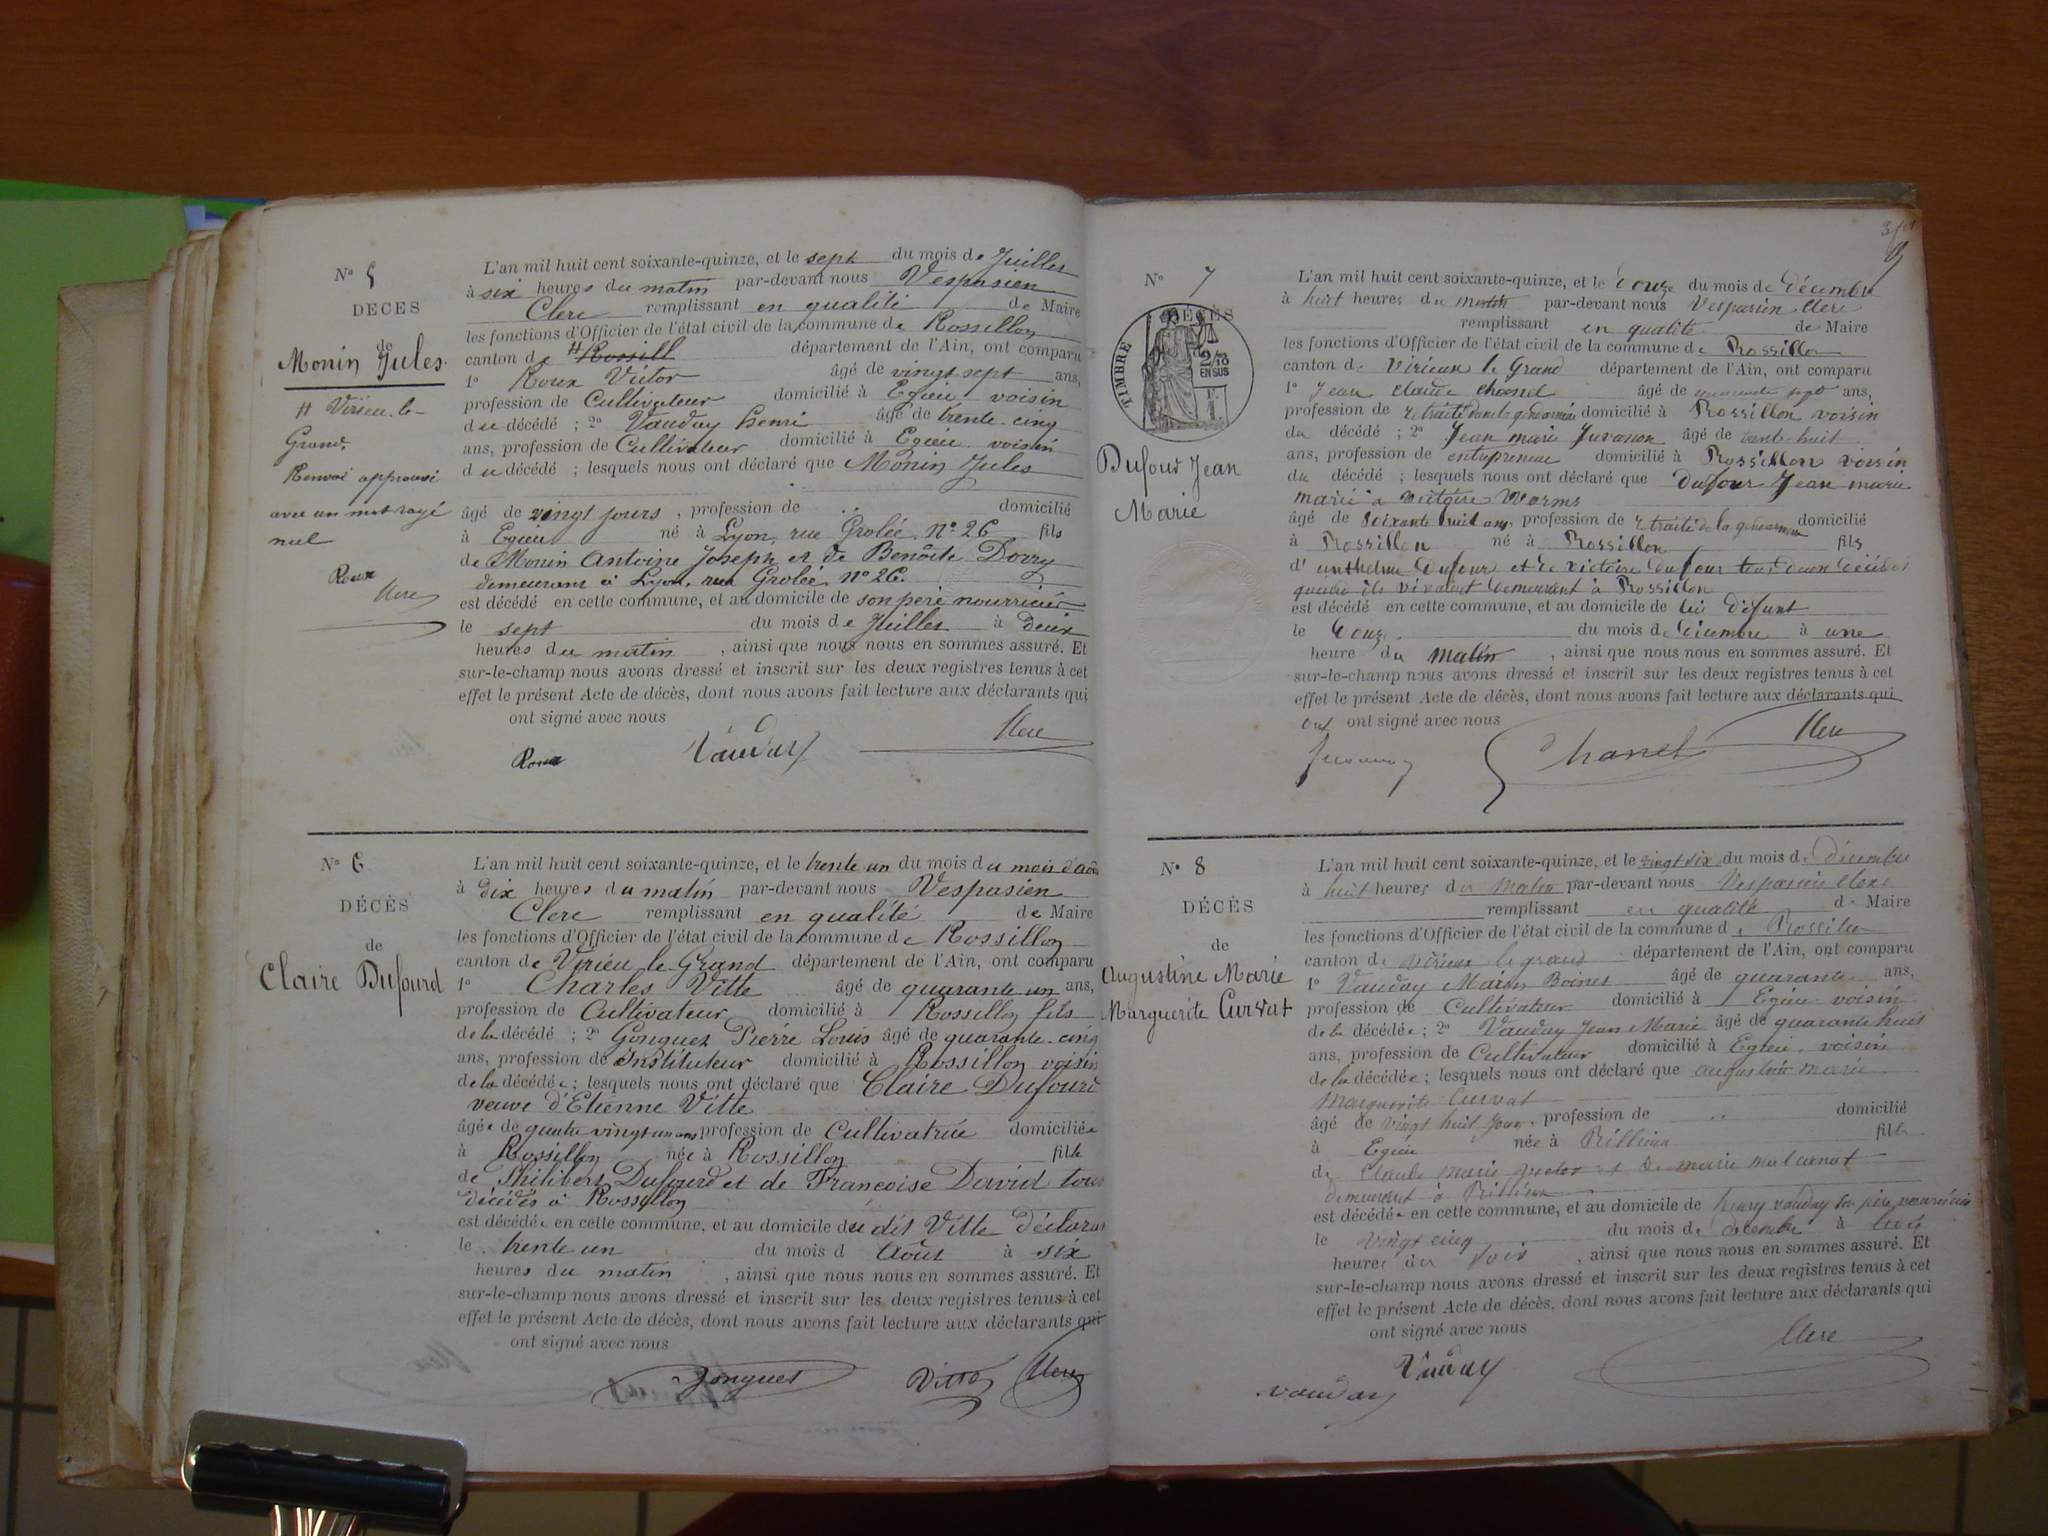 N° 5
DECES
de
Monin Jules
# Virieu-le-
Grand
Renvoi approuvé
avec un mot rayé
nul
Roux
Clerc
L'an mil huit cent soixante-quinze, et le sept du mois de Juillet
à six heures du matin par-devant nous Vespasien
Clerc remplissant en qualité de Maire
les fonctions d'Officier de l'état civil de la commune de Rossillon
canton de # Rossill département de l'Ain, ont comparu
1° Roux Victor âgé de vingt sept ans,
profession de Cultivateur domicilié à Egieu voisin
du décédé ; 2° Vauday henri âgé de trente-cinq
ans, profession de Cultivateur domicilié à Egieu voisin
du décédé ; lesquels nous ont déclaré que Monin Jules
âgé de vingt jours, profession de domicilié
à Egieu né à Lyon, rue Grolée, N° 26 fils
de Monin Antoine Joseph et de Benoîte Dorry
demeurant à Lyon, rue Grolée N° 26.
est décédé en cette commune, et au domicile de son père nourricier
le sept du mois de Juillet à deux
heures du matin, ainsi que nous nous en sommes assuré. Et
sur-le-champ nous avons dressé et inscrit sur les deux registres tenus à cet
effet le présent Acte de décès, dont nous avons fait lecture aux déclarants qui
ont signé avec nous
Roux Vauday Clerc
N° 6
DÉCÈS
de
Claire Dufourd
L'an mil huit cent soixante-quinze, et le trente un du mois du mois d'août
à dix heures du matin par-devant nous Vespasien
Clerc remplissant en qualité de Maire
les fonctions d'Officier de l'état civil de la commune de Rossillon
canton de Virieu le Grand département de l'Ain, ont comparu
1° Charles Vitte âgé de quarante un ans,
profession de Cultivateur domicilié à Rossillon fils
de la décédé ; 2° Gonguet Pierre Louis âgé de quarante-cinq
ans, profession de instituteur domicilié à Rossillon voisin
de la décédée ; lesquels nous ont déclaré que Claire Dufourd
veuve d'Etienne Vitte
âgée de quatre vingt un ans profession de Cultivatrice domiciliée
à Rossillon née à Rossillon fille
de Philibert Dufourd et de Francoise David tous
décédés à Rossillon
est décédée en cette commune, et au domicile du dit Vitte déclarant
le trente un du mois d Août à six
heures du matin, ainsi que nous nous en sommes assuré. Et
sur-le-champ nous avons dressé et inscrit sur les deux registres tenus à cet
effet le présent Acte de décès, dont nous avons fait lecture aux déclarants qui
ont signé avec nous
Gonguet Vitte Clerc
N° 7
DÉCÈS
TIMBRE
2/10
EN SUS
F.
1.
Dufour Jean
Marie
L'an mil huit cent soixante-quinze, et le douze du mois de décembre
à huit heures du matin par-devant nous Vespasien Clerc
remplissant en qualité de Maire
les fonctions d'Officier de l'état civil de la commune de Rossillon
canton de Virieux le Grand département de l'Ain, ont comparu
1° Jean claude Chanel âgé de quarante sept ans,
profession de retraité dans la gendarmerie domicilié à Rossillon voisin
du décédé ; 2° Jean marie Juvanon âgé de trente-huit
ans, profession de entrepreneur domicilié à Rossillon voisin
du décédé ; lesquels nous ont déclaré que dufour Jean marie
marié a victoire Worms
âgé de soixante huit ans, profession de retraité de la gendarmerie domicilié
à Rossillon né à Rossillon fils
d' anthelme Dufour et de victoire Dufour tous deux décédés
quand ils vivaient demeurant à Rossillon
est décédé en cette commune, et au domicile de lui défunt
le douze du mois de décembre à une
heure du matin, ainsi que nous nous en sommes assuré. Et
sur-le-champ nous avons dressé et inscrit sur les deux registres tenus à cet
effet le présent Acte de décès, dont nous avons fait lecture aux déclarants qui
ont ont signé avec nous
Juvanon Chanel Clerc
N° 8
DÉCÈS
de
Augustine Marie
Marguerite Curvat
L'an mil huit cent soixante-quinze, et le vingt six du mois de décembre
à huit heures du matin par-devant nous Vespasien Clerc
remplissant en qualité de Maire
les fonctions d'Officier de l'état civil de la commune de Rossillon
canton de virieux le grand département de l'Ain, ont comparu
1° Vauday Marin âgé de quarante ans,
profession de Cultivateur domicilié à Egieu voisin
de la décédée ; 2° Vauday Jean Marie âgé de quarante huit
ans, profession de Cultivateur domicilié à Egieu voisin
de la décédée ; lesquels nous ont déclaré que augustine marie
Marguerite Curvat
âgé de vingt huit jours, profession de domicilié
à Egieu née à Rillieux fille
de Claude marie et de marie
demeurant à Rillieux
est décédée en cette commune, et au domicile de henry vauday son père nourricier
le vingt cinq du mois de décembre à trois
heures du soir, ainsi que nous nous en sommes assuré. Et
sur-le-champ nous avons dressé et inscrit sur les deux registres tenus à cet
effet le présent Acte de décès, dont nous avons fait lecture aux déclarants qui
ont signé avec nous
Vauday Clerc
vauday